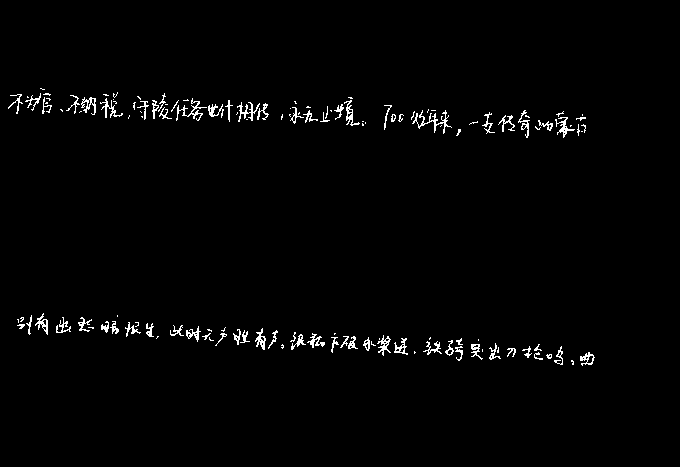 不为官、不纳税,守陵任务世代相传,永无止境。700多年来,一支传奇的蒙古
别有幽愁暗恨生,此时无声胜有声。银瓶乍破水浆迸,铁骑突出刀枪鸣。曲